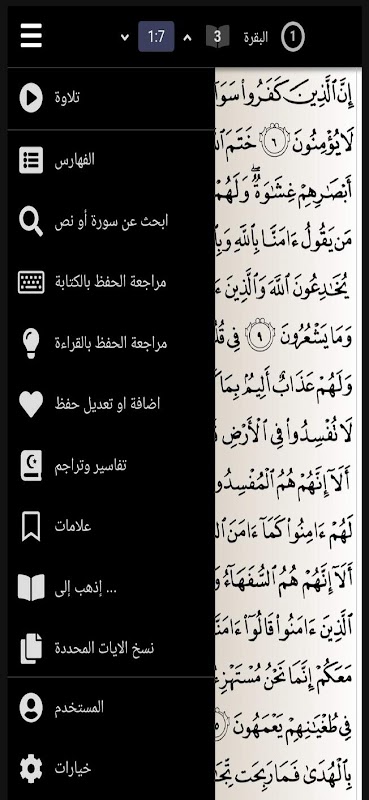 1 البقرة 3 1:7
تلاوة
الفهارس
ابحث عن سورة أو نص
مراجعة الحفظ بالكتابة
مراجعة الحفظ بالقراءة
اضافة او تعديل حفظ
تفاسير وتراجم
علامات
إذهب إلى ...
نسخ الايات المحددة
المستخدم
خيارات
إِنَّ ٱلَّذِينَ كَفَرُوا۟ سَوَا
لَا يُؤْمِنُونَ ٦ خَتَمَ
أَبْصَـٰرِهِمْ غِشَـٰوَةٌ ۖ وَلَهُمْ
مَن يَقُولُ ءَامَنَّا بِٱللَّهِ وَبِ
يُخَـٰدِعُونَ ٱللَّهَ وَٱلَّذِينَ ءَ
وَمَا يَشْعُرُونَ ٩ فِى قُلُ
وَلَهُمْ عَذَابٌ أَلِيمٌۢ بِمَا كَ
لَا تُفْسِدُوا۟ فِى ٱلْأَرْضِ قَ
أَلَآ إِنَّهُمْ هُمُ ٱلْمُفْسِدُو
لَهُمْ ءَامِنُوا۟ كَمَآ ءَامَنَ ٱل
أَلَآ إِنَّهُمْ هُمُ ٱلسُّفَهَآءُ وَ
ٱلَّذِينَ ءَامَنُوا۟ قَالُوٓا۟ ءَامَنَّ
مَعَكُمْ إِنَّمَا نَحْنُ مُسْتَهْزِءُ
فِى طُغْيَـٰنِهِمْ يَعْمَهُونَ
بِٱلْهُدَىٰ فَمَا رَبِحَت تِّجَـٰ